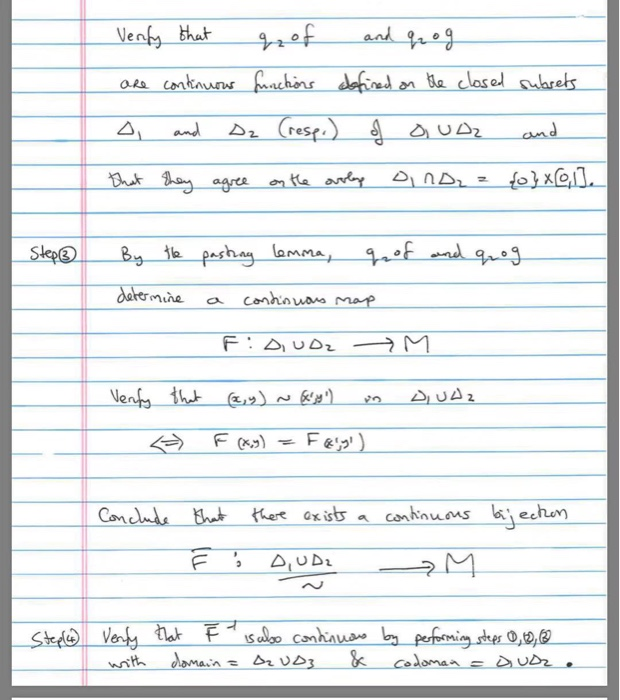 Verify that q₂of and q₂og
are continuous functions defined on the closed subsets
Δ₁ and Δ₂ (resp.) of Δ₁∪Δ₂ and
that they agree on the overlap Δ₁∩Δ₂ = {0}×[0,1].
Step③ By the pasting lemma, q₂of and q₂og
determine a continuous map
F : Δ₁∪Δ₂ → M
Verify that (x,y) ~ (x',y') in Δ₁∪Δ₂
⟺ F(x,y) = F(x',y')
Conclude that there exists a continuous bijection
F̄ : Δ₁∪Δ₂/~ → M
Step④ Verify that F̄⁻¹ is also continuous by performing steps ①,②,③
with domain = Δ₂∪Δ₃ & codomain = Δ₁∪Δ₂.